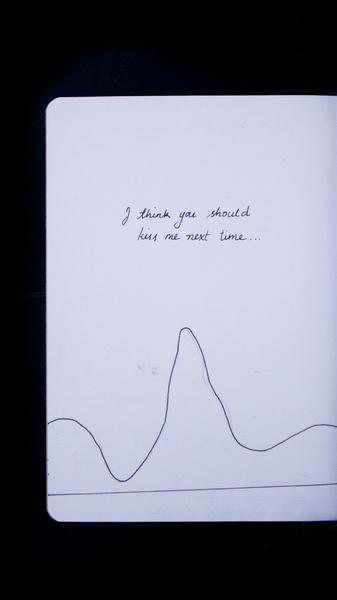 I think you should
kiss me next time...